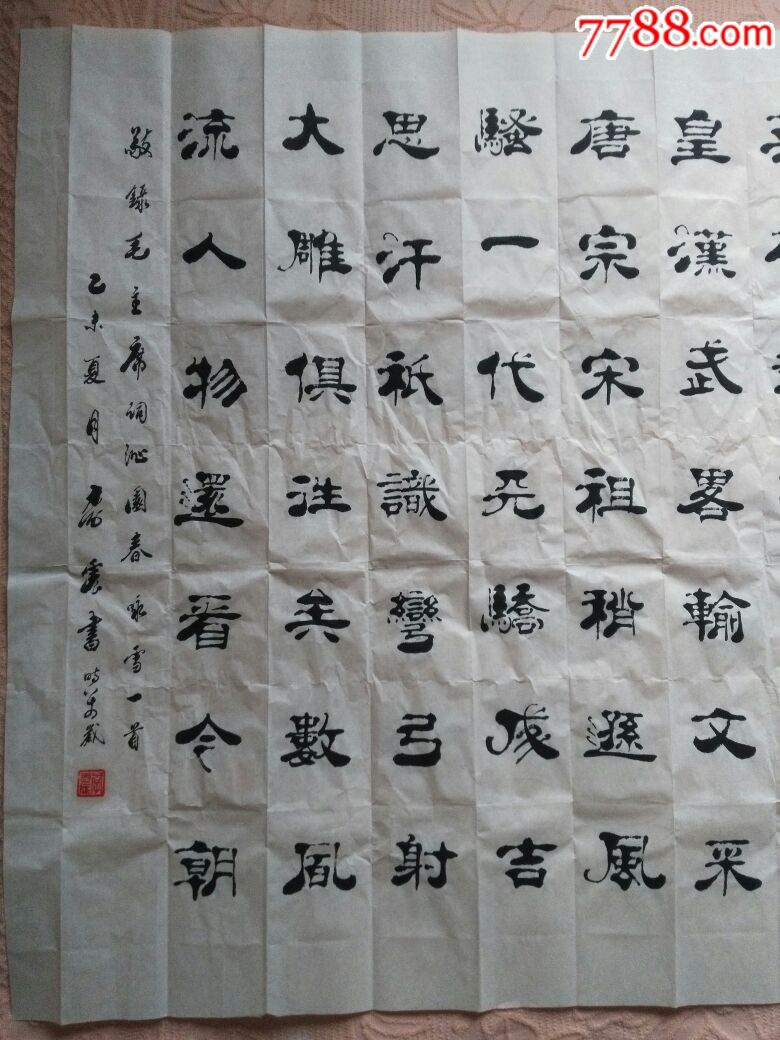 7788.com
皇漢武畧輸文采
唐宗宋祖稍遜風
騷一代天驕成吉
思汗祇識彎弓射
大雕俱往矣數風
流人物還看今朝
敬錄毛主席詞沁園春咏雪一首
乙未夏月書時歲